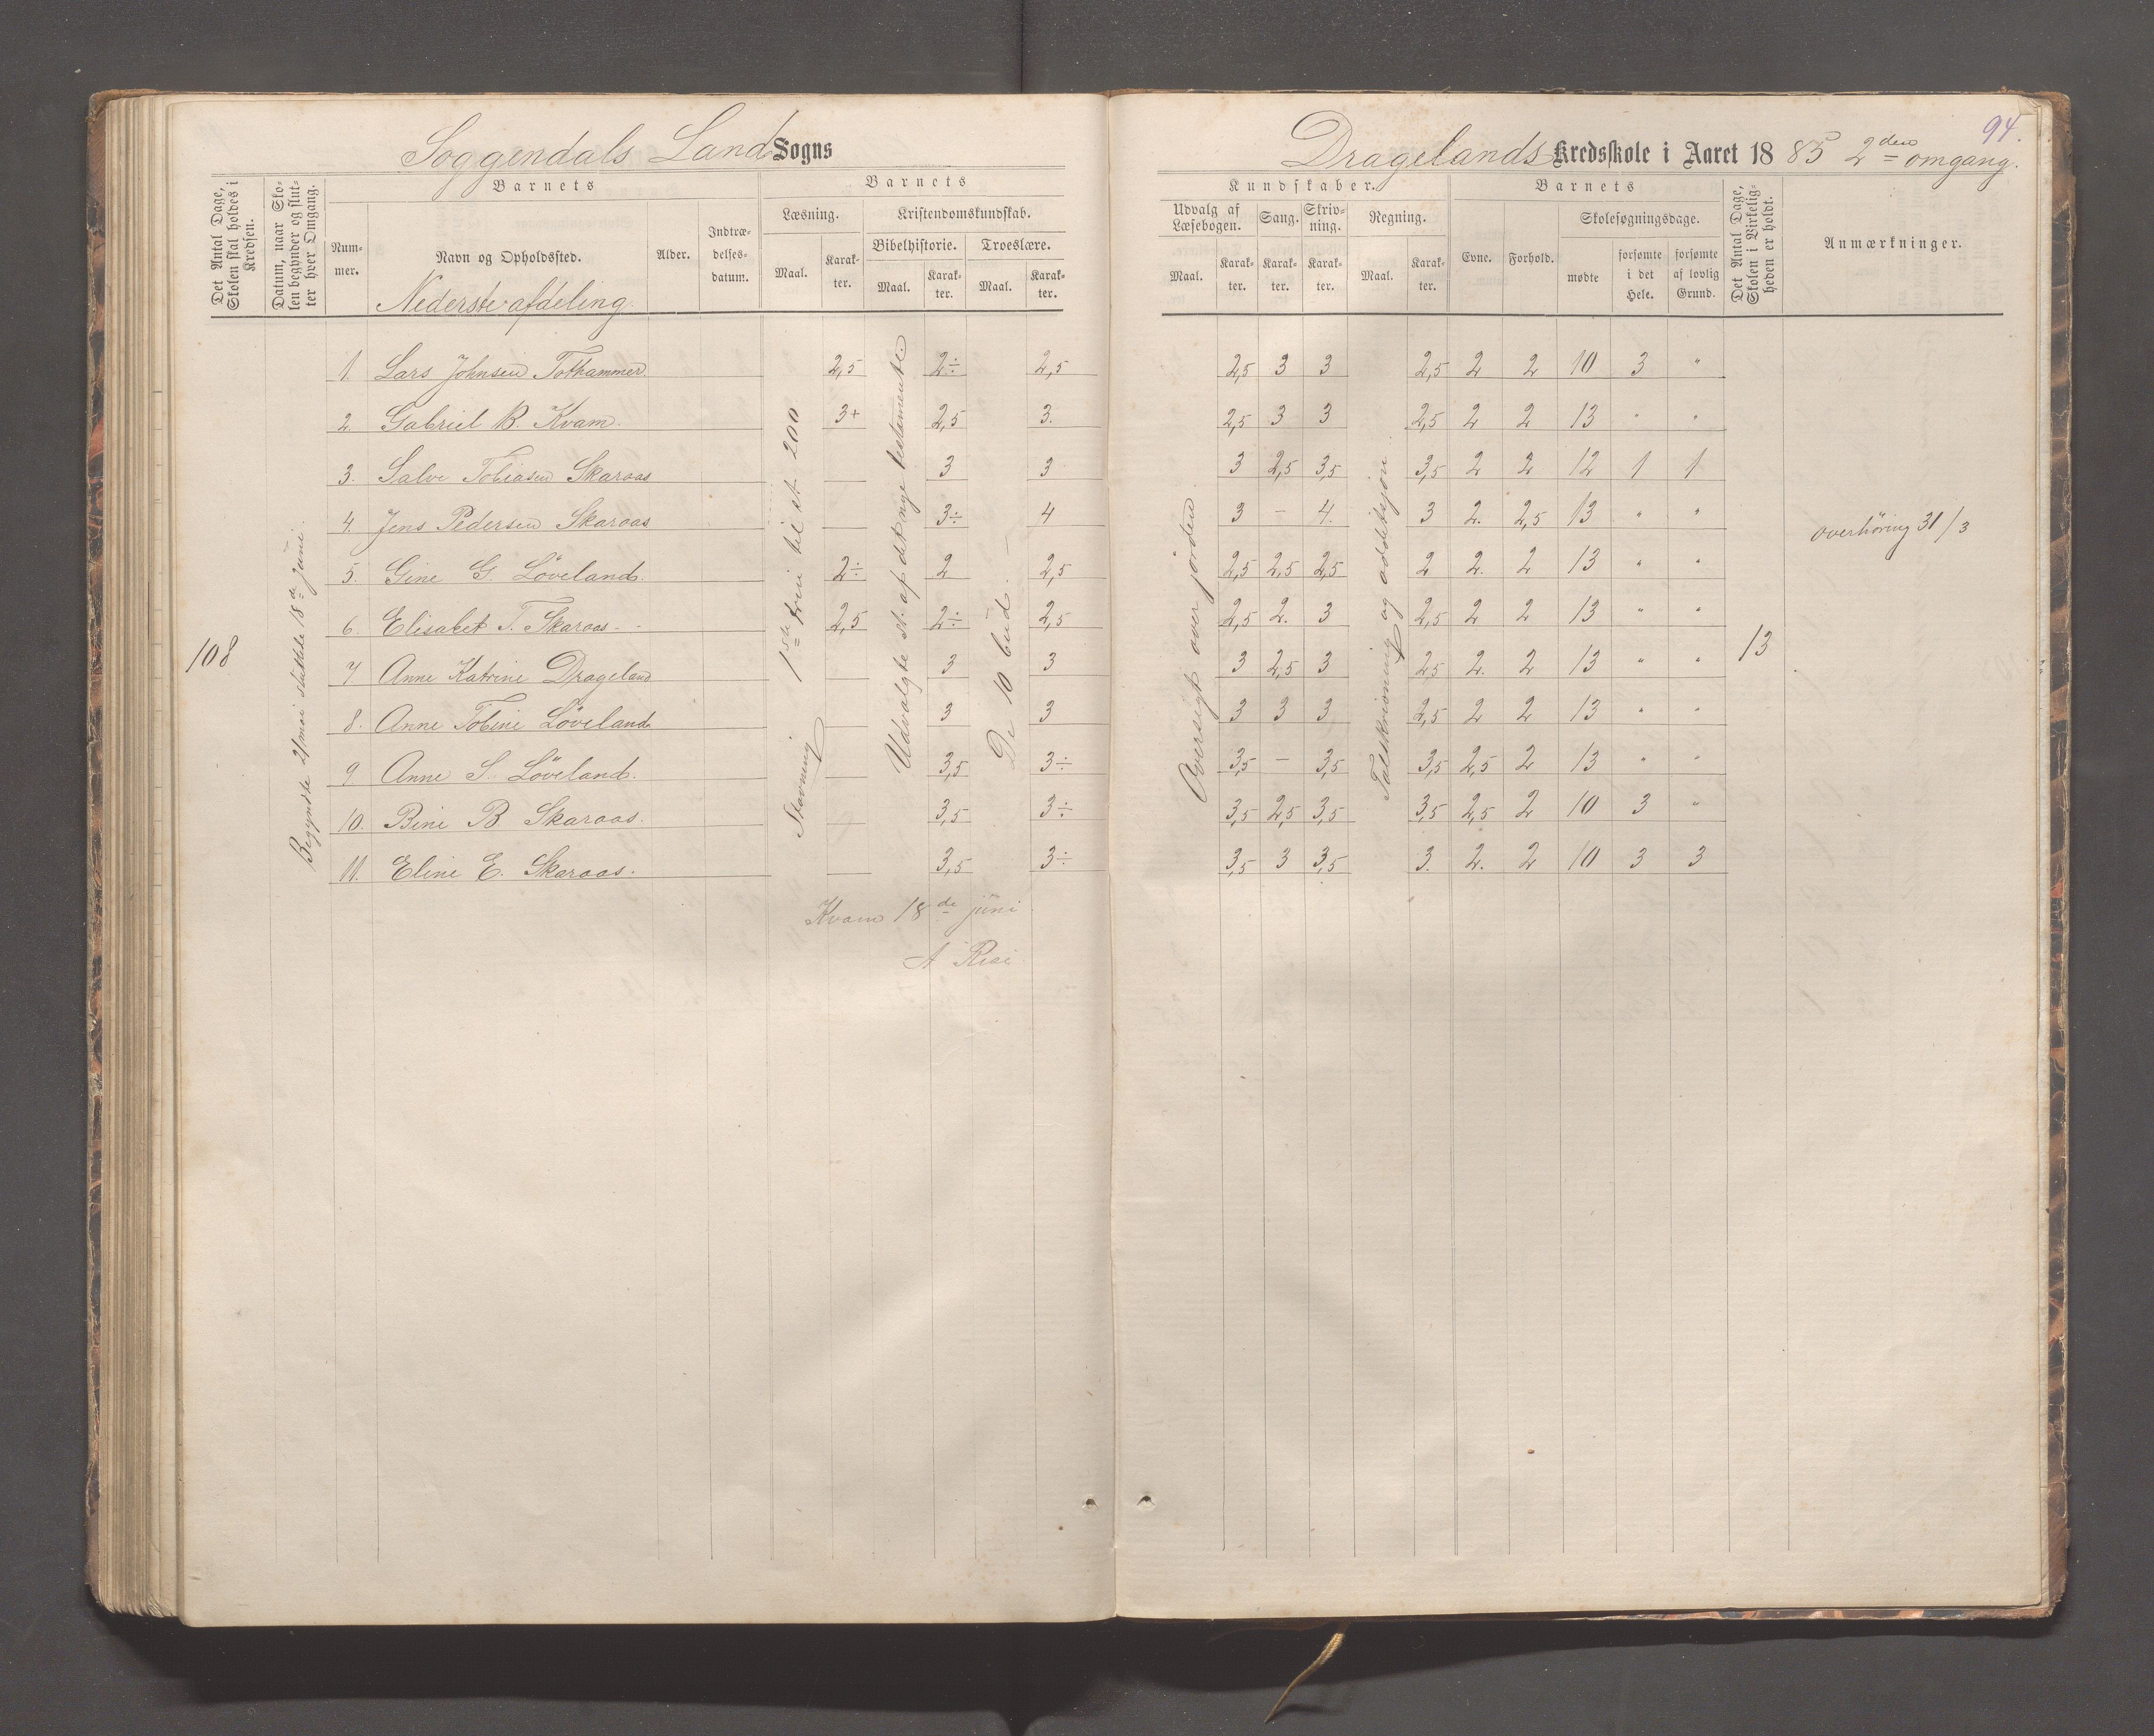 Soggendals Land Sogns
Det Antal Dage, Skolen skal holdes i Kredsen.
Datum, naar Skolen begynder og slutter hver Omgang.
Barnets
Nummer.
Navn og Opholdssted.
Alder.
Indtrædelsesdatum.
Barnets
Læsning.
Maal.
Karakter.
Kristendomskundskab.
Bibelhistorie.
Maal.
Karakter.
Troeslære.
Maal.
Karakter.
Nederste afdeling.
108
Begyndte 21 mai sluttede 18de juni.
Stavning 1ste trin til st 200
Udvalgte st. af det nye testamente.
De 10 bud.
1. Lars Johnsen Tothammer. 2,5 2÷ 2,5
2. Gabriel B. Kvam. 3+ 2,5 3.
3. Salve Tobiasen Skaraas 3 3
4. Jens Pedersen Skaraas 3÷ 4
5. Gine G. Löveland. 2÷ 2 2,5
6. Elisabet T. Skaraas 2,5 2÷ 2,5
7 Anne Katrine Drageland 3 3
8. Anne Tobine Löveland 3 3
9 Anne S. Löveland. 3,5 3÷
10. Bine B Skaraas. 3,5 3÷
11. Eline E. Skaraas. 3,5 3÷
Kvam 18de juni
94.
Dragelands Kredsskole i Aaret 1885 2den omgang.
Kundskaber.
Udvalg af Læsebogen.
Maal.
Karakter.
Sang.
Karakter.
Skrivning.
Karakter.
Regning.
Maal.
Karakter.
Barnets
Evne.
Forhold.
Skolesøgningsdage.
mødte
forsømte i det Hele.
forsømte af lovlig Grund.
Det Antal Dage, Skolen i Virkeligheden er holdt.
Anmærkninger.
Oversigt over jorden.
Talskrivning og addetsjon.
2,5 3 3 2,5 2 2 10 3 "
2,5 3 3 2,5 2 2 13 " "
3 2,5 3,5 3,5 2 2 12 1 1
3 – 4. 3 2. 2,5 13 " "
2,5 2,5 2,5 2 2. 2 13 " "
2,5 2. 3 2,5 2 2 13 " "
3 2,5 3 2,5 2. 2 13 " "
3 3 3 2,5 2 2 13 " "
3,5 – 3,5 3,5 2,5 2 13 " "
3,5 2,5 3,5 3,5 2,5 2 10 3 "
3,5 3 3,5 3. 2. 2 10 3 3
13
overhöring 31/3